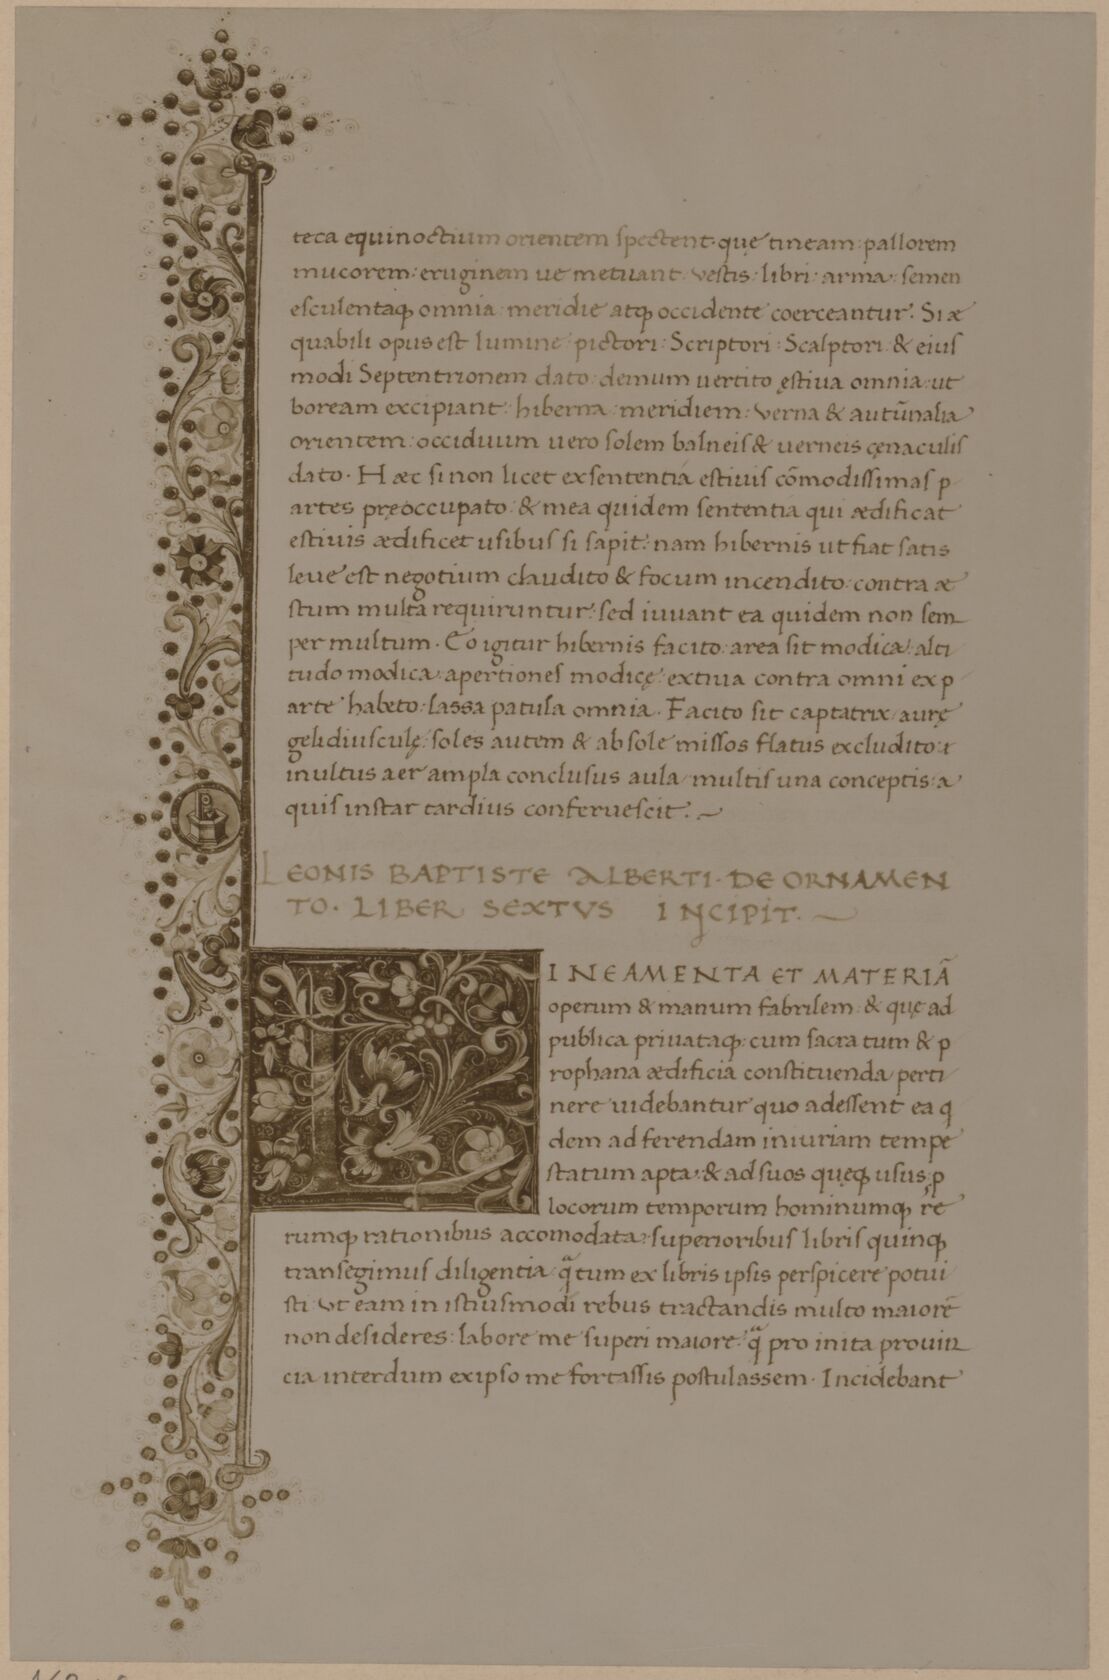 teca equinoctium orientem spectent· quę tineam: pallorem
mucorem: eruginem ue metuant: vestis: libri: arma: semen
esculentaq̧ omnia: meridie atq̧ occidente coerceantur. Si æ
quabili opus est lumine: pictori: Scriptori: Scalptori: & eius
modi Septentrionem dato: demum uertito ęstiua omnia: ut
boream excipiant: hiberna: meridiem: verna & autūnalia
orientem: occiduum uero solem balneis & uerneis cęnaculis
dato· Hæc si non licet ex sententia estiuis cōmodissimas p
artes pręoccupato: & mea quidem sententia qui ædificat
estiuis ædificet usibus si sapit: nam hibernis ut fiat satis
leue est negotium claudito & focum incendito: contra æ
stum multa requiruntur: sed iuuant ea quidem non sem
per multum· Eo igitur hibernis facito: area sit modica: alti
tudo modica: apertiones modicę: extiua contra omni ex p
arte habeto: lassa patula omnia· Facito sit captatrix aurę
gelidiusculę: soles autem & ab sole missos flatus excludito: ı
multus aer ampla conclusus aula multis una conceptis: a
quis instar tardius conferuescit.
LEONIS BAPTISTE ALBERTI· DE ORNAMEN
TO· LIBER SEXTVS INCIPIT·
L INEAMENTA ET MATERIĀ
operum & manum fabrilem: & quę ad
publica priuataq̧: cum sacra tum & p
rophana ædificia constituenda perti
nere uidebantur quo adessent ea q̄
dem ad ferendam iniuriam tempe
statum apta: & ad suos quęq̧ usus: p
locorum temporum hominumq̧ re
rumq̧ rationibus accomodata: superioribus libris quinq̧
transegimus diligentia q̄tum ex libris ipsis perspicere potui
sti ut eam in istiusmodi rebus tractandis multo maiorē
non desideres: labore me superi maiore: q̄ pro inita prouin
cia interdum ex ipso me fortassis postulassem· Incidebant